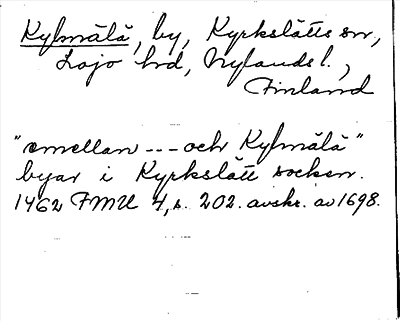 Kylmälä, by, Kyrkslätts sn,
Lojo hd, Nylands l.,
Finland
"emellan --- och Kylmälä"
byar i Kyrkslätt socken.
1462 FMU 4, s. 202. avskr. av 1698.